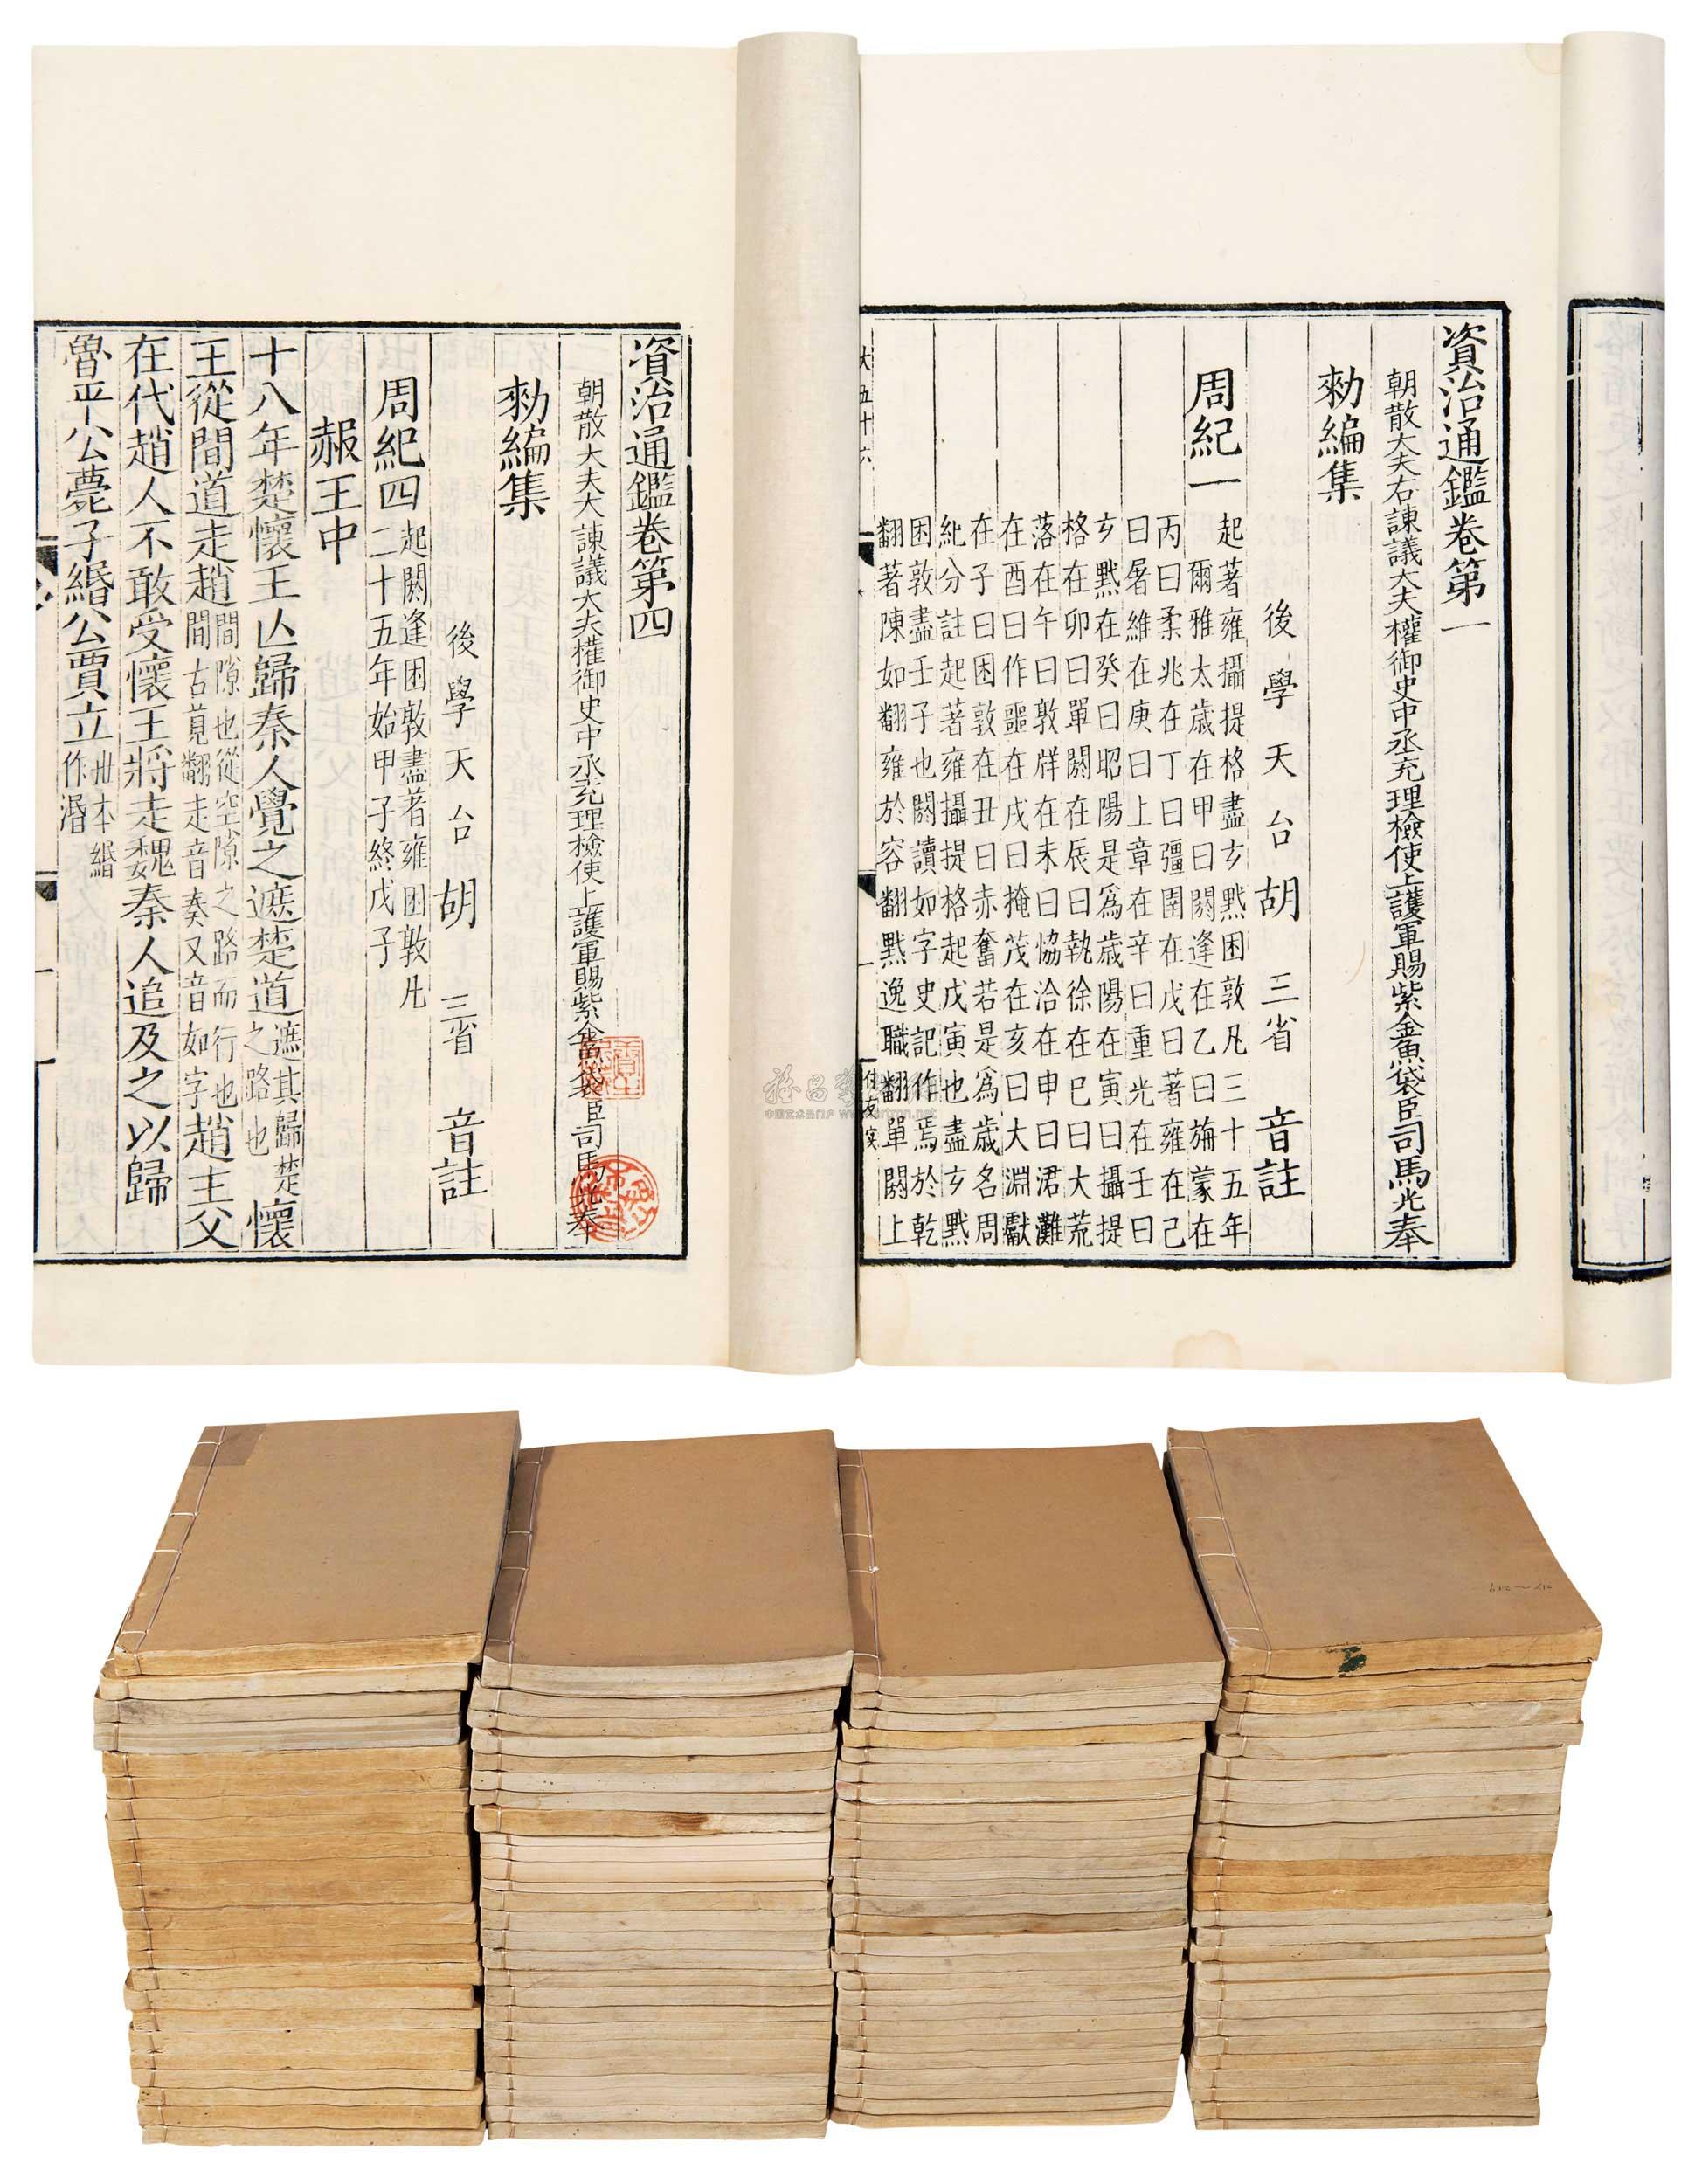 資治通鑑卷第一
朝散大夫右諫議大夫權御史中丞充理檢使上護軍賜紫金魚袋臣司馬光奉
勑編集
後學天台胡三省音註
周紀一
起著雍攝提格盡玄黓困敦凡三十五年
爾雅太歲在甲曰閼逢在乙曰旃蒙在
丙曰柔兆在丁曰彊圉在戊曰著雍在己
曰屠維在庚曰上章在辛曰重光在壬曰
玄黓在癸曰昭陽是爲歲陽在寅曰攝提
格在卯曰單閼在辰曰執徐在巳曰大荒
落在午曰敦牂在未曰協洽在申曰涒灘
在酉曰作噩在戌曰掩茂在亥曰大淵獻
在子曰困敦在丑曰赤奮若是爲歲名周
紀分註起著雍攝提格起戊寅也盡玄黓
困敦盡壬子也閼讀如字史記作焉於乾
翻著陳如翻雍於容翻黓逸職翻單閼上
大五十六
一
資治通鑑卷第四
朝散大夫大諫議大夫權御史中丞充理檢使上護軍賜紫金魚袋臣司馬光奉
勑編集
後學天台胡三省音註
周紀四起閼逢困敦盡著雍困敦凡二十五年始甲子終戊子
赧王中
十八年楚懷王亾歸秦人覺之遮楚道遮其歸楚之路也懷
王從間道走趙間隙也從空隙之路而行也間古莧翻走音奏又音如字趙主父
在代趙人不敢受懷王將走魏秦人追及之以歸
魯平公薨子緡公賈立世本緡作湣
中国艺术品门户 www.artron.net